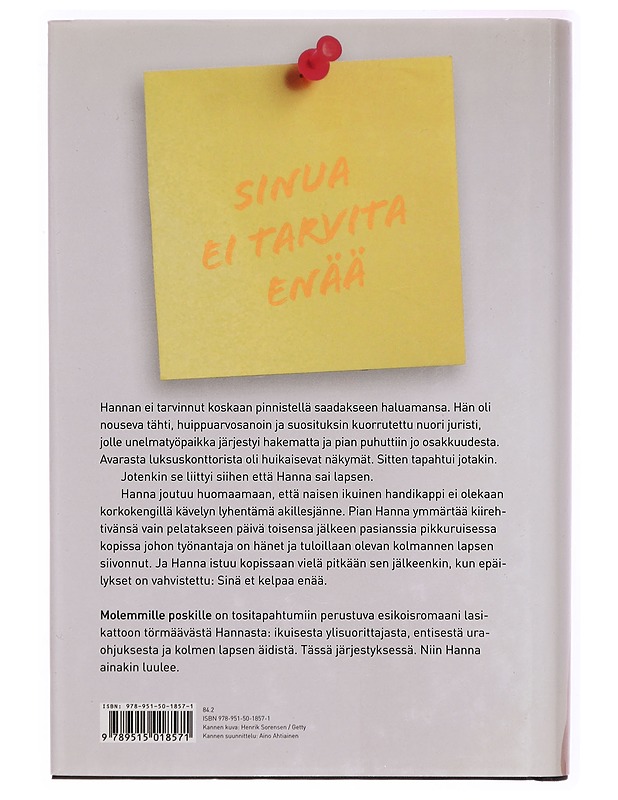 SINUA
EI TARVITA
ENÄÄ
Hannan ei tarvinnut koskaan pinnistellä saadakseen haluamansa. Hän oli
nouseva tähti, huippuarvosanoin ja suosituksin kuorrutettu nuori juristi,
jolle unelmatyöpaikka järjestyi hakematta ja pian puhuttiin jo osakkuudesta.
Avarasta luksuskonttorista oli huikaisevat näkymät. Sitten tapahtui jotakin.
Jotenkin se liittyi siihen että Hanna sai lapsen.
Hanna joutuu huomaamaan, että naisen ikuinen handikappi ei olekaan
korkokengillä kävelyn lyhentämä akillesjänne. Pian Hanna ymmärtää kiireh-
tivänsä vain pelatakseen päivä toisensa jälkeen pasianssia pikkuruisessa
kopissa johon työnantaja on hänet ja tuloillaan olevan kolmannen lapsen
siivonnut. Ja Hanna istuu kopissaan vielä pitkään sen jälkeenkin, kun epäi-
lykset on vahvistettu: Sinä et kelpaa enää.
Molemmille poskille on tositapahtumiin perustuva esikoisromaani lasi-
kattoon törmäävästä Hannasta: ikuisesta ylisuorittajasta, entisestä ura-
ohjuksesta ja kolmen lapsen äidistä. Tässä järjestyksessä. Niin Hanna
ainakin luulee.
ISBN: 978-951-50-1857-1
9 789515 018571
84.2
ISBN 978-951-50-1857-1
Kannen kuva: Henrik Sorensen / Getty
Kannen suunnittelu: Aino Ahtiainen